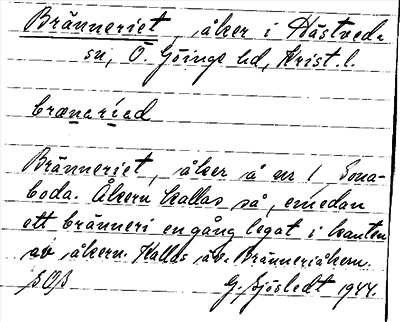 Bränneriet, åker i Hästveda
sn, Ö. Göinge hd, Krist. l.
brænaríad
Bränneriet, åker å nr 1 Sona-
boda. Åkern kallas så, emedan
ett bränneri en gång legat i kanten
av åkern. Kallas äv. Bränneriåkern.
G. Sjöstedt 1944